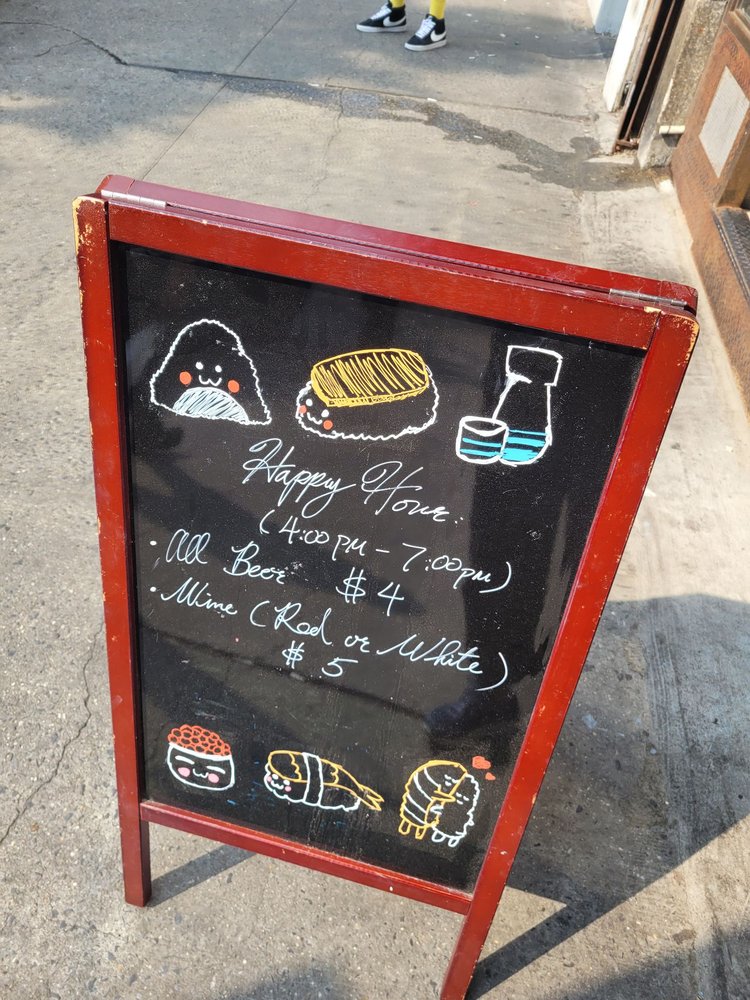 Happy Hour:
(4:00PM - 7:00PM)
• All Beer $4
• Wine (Red or White)
$5